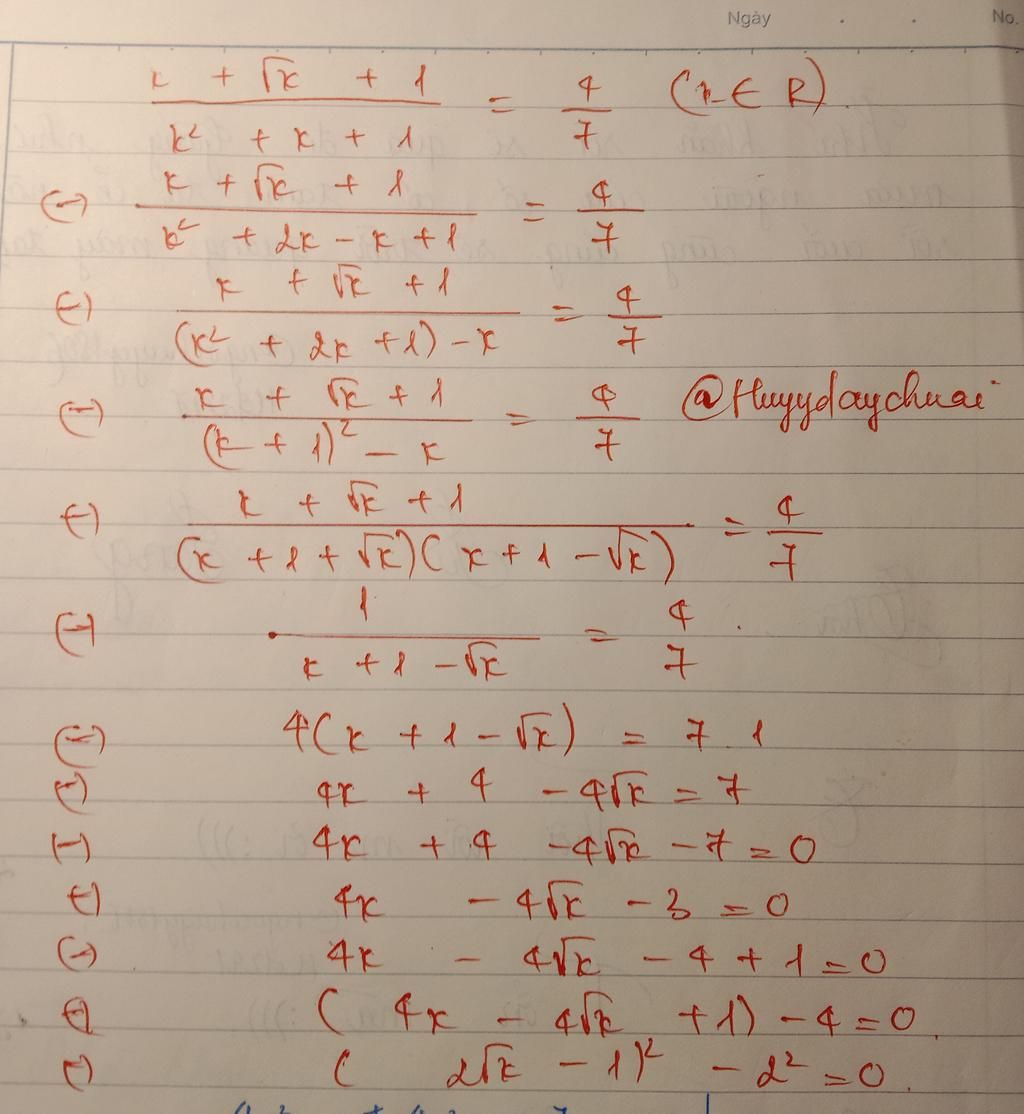 Ngày . . No.
x + √x + 1 / x² + x + 1 = 4/7 (x ∈ R).
(=) x + √x + 1 / x² + 2x - x + 1 = 4/7
(=) x + √x + 1 / (x² + 2x + 1) - x = 4/7
(=) x + √x + 1 / (x + 1)² - x = 4/7 @Huyydaychuai
(=) x + √x + 1 / (x + 1 + √x)(x + 1 - √x) = 4/7
(=) 1 / x + 1 - √x = 4/7 .
(=) 4(x + 1 - √x) = 7 1
(=) 4x + 4 - 4√x = 7
(=) 4x + 4 - 4√x - 7 = 0
(=) 4x - 4√x - 3 = 0
(=) 4x - 4√x - 4 + 1 = 0
(=) ( 4x - 4√x + 1) - 4 = 0.
(=) ( 2√x - 1)² - 2² = 0.